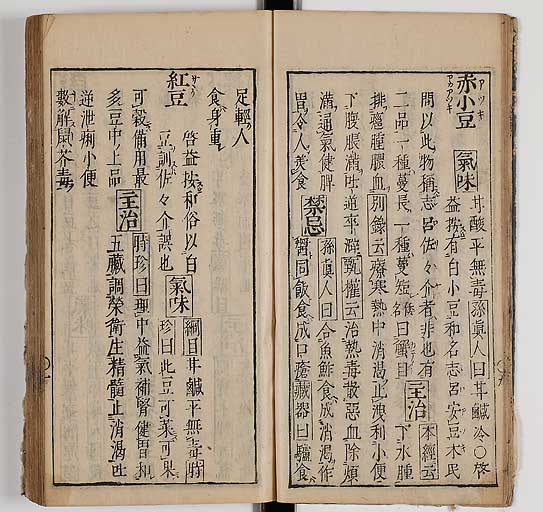 赤小豆
氣味
甘酸平無毒孫眞人曰甘鹹冷○啓
益按有白小豆和名志呂安豆木民
間以此物稱志呂佐々介者非也有
二品一種蔓長一種蔓短名曰蟹目
主治
本經云
下水腫
排癰腫膿血別錄云療寒熱中消渴止洩利小便
下腹脹滿吐逆卒澼甄權云治熱毒散惡血除煩
滿通氣健脾
胃令人美食
禁忌
孫眞人曰合魚鮓食成消渴作
醬同飯食成口瘡藏器曰驢食
足輕人
食身重
紅豆
啓益按和俗以白
豆訓佐々介誤也
氣味
綱目甘鹹平無毒時
珍曰此豆可菜可果
可穀備用最
多豆中上品
主治
時珍曰理中益氣補腎健胃和
五臟調榮衛生精髓止消渴吐
逆泄痢小便
數解鼠莽毒